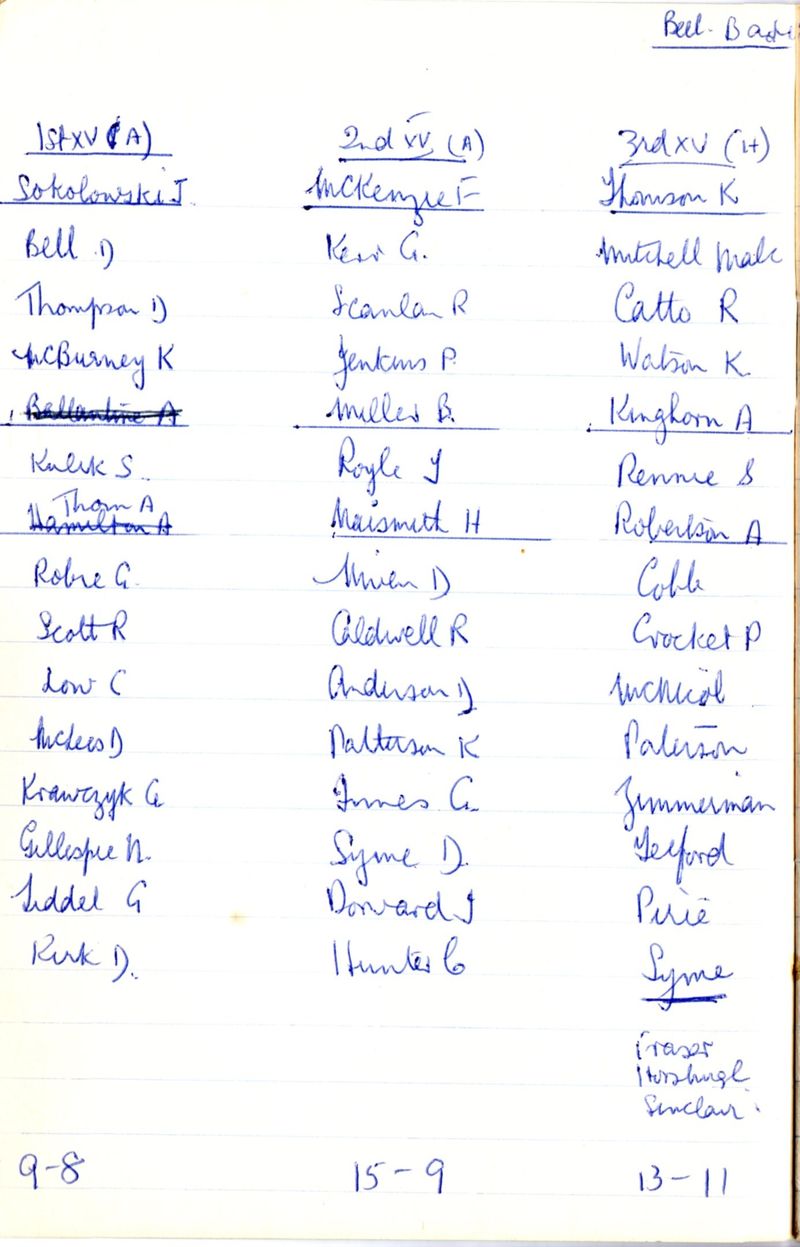 Bell.
1st XV (A)
Sokolowski J.
Bell D
Thompson D
McBurney K
Ballantine A
Kulik S.
Thom A
Hamilton A
Robre G.
Scott R
Low C
McLees D
Krawczyk G
Gillespie N.
Liddel G
Kirk D.
9-8
2nd XV (A)
McKenzie F
Kerr G.
Scanlan R
Jenkins P.
Miller B.
Royle J
Naismith H
Niven D
Caldwell R
Anderson D
Patterson K
Innes G.
Syme D.
Dorward J
Hunter C
15-9
3rd XV (H)
Thomson K
Mitchell Malc
Catto R
Watson K.
Kinghorn A
Rennie S
Robertson A
Cobb
Crocket P
McNicol
Paterson
Zimmerman
Telford
Pirie
Syme
Fraser
Horsburgh
Sinclair
13-11